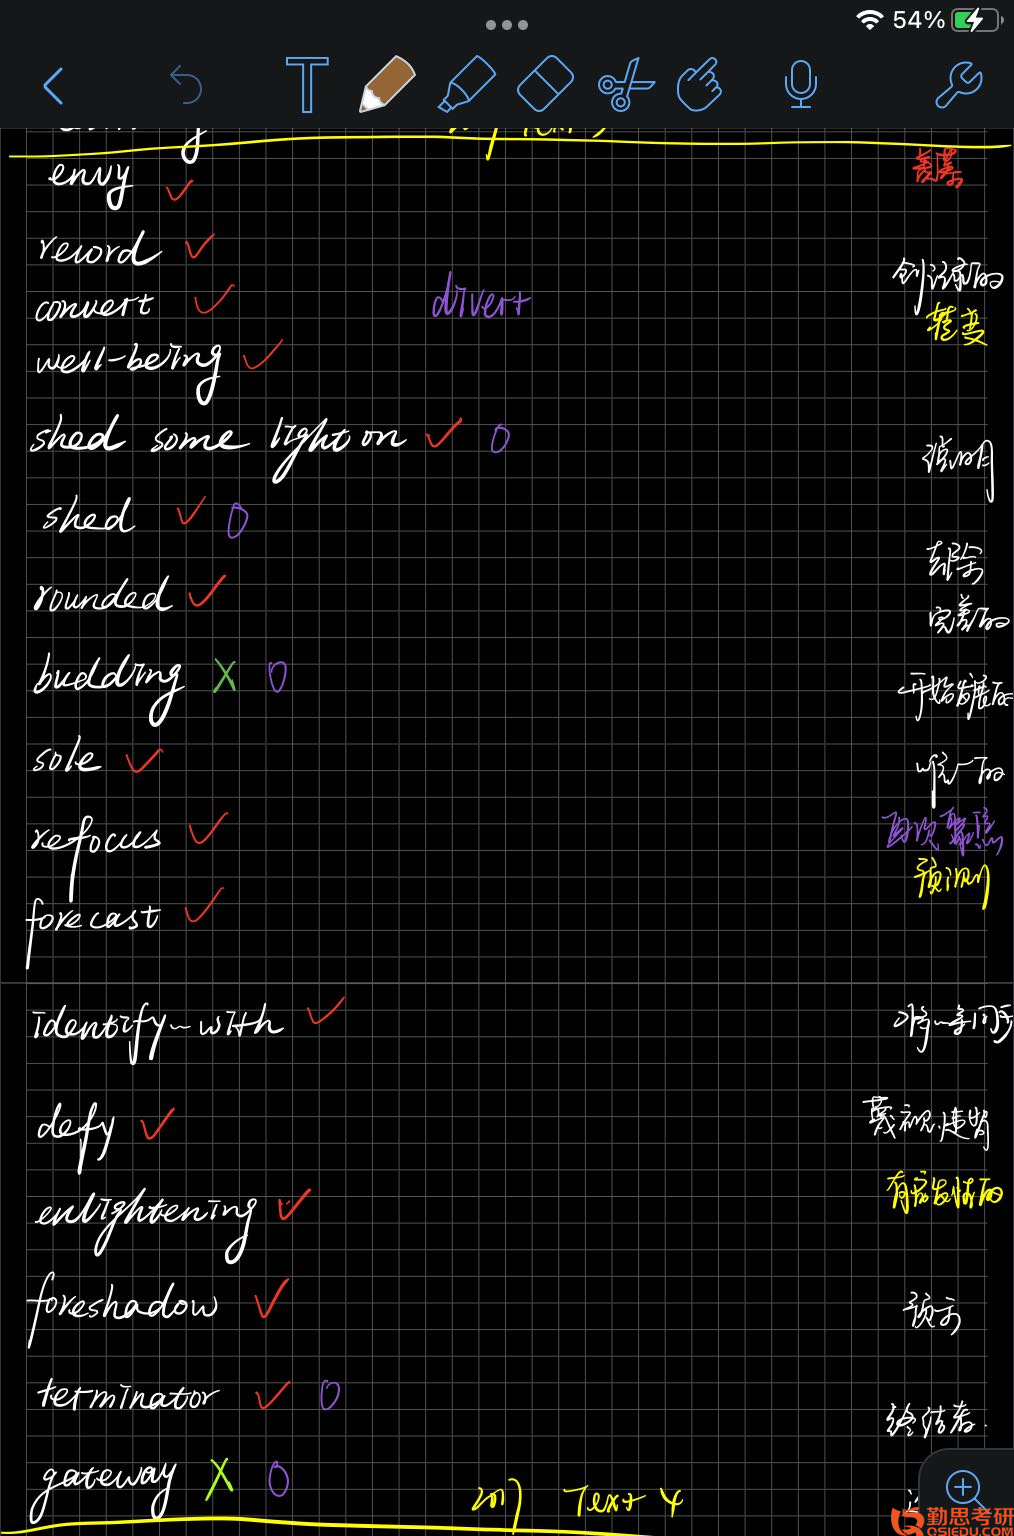 54%
envy
羡慕
record
创记录的
convert
divert
转变
well-being
shed some light on
说明
shed
去除
rounded
完善的
budding
开始发展的
sole
唯一的
refocus
再次聚焦
forecast
预测
identify~with
defy
蔑视.违背
enlightening
有启发性的
foreshadow
预示
terminator
终结者.
gateway
Text 4
勤思考研
QSIEDU.COM